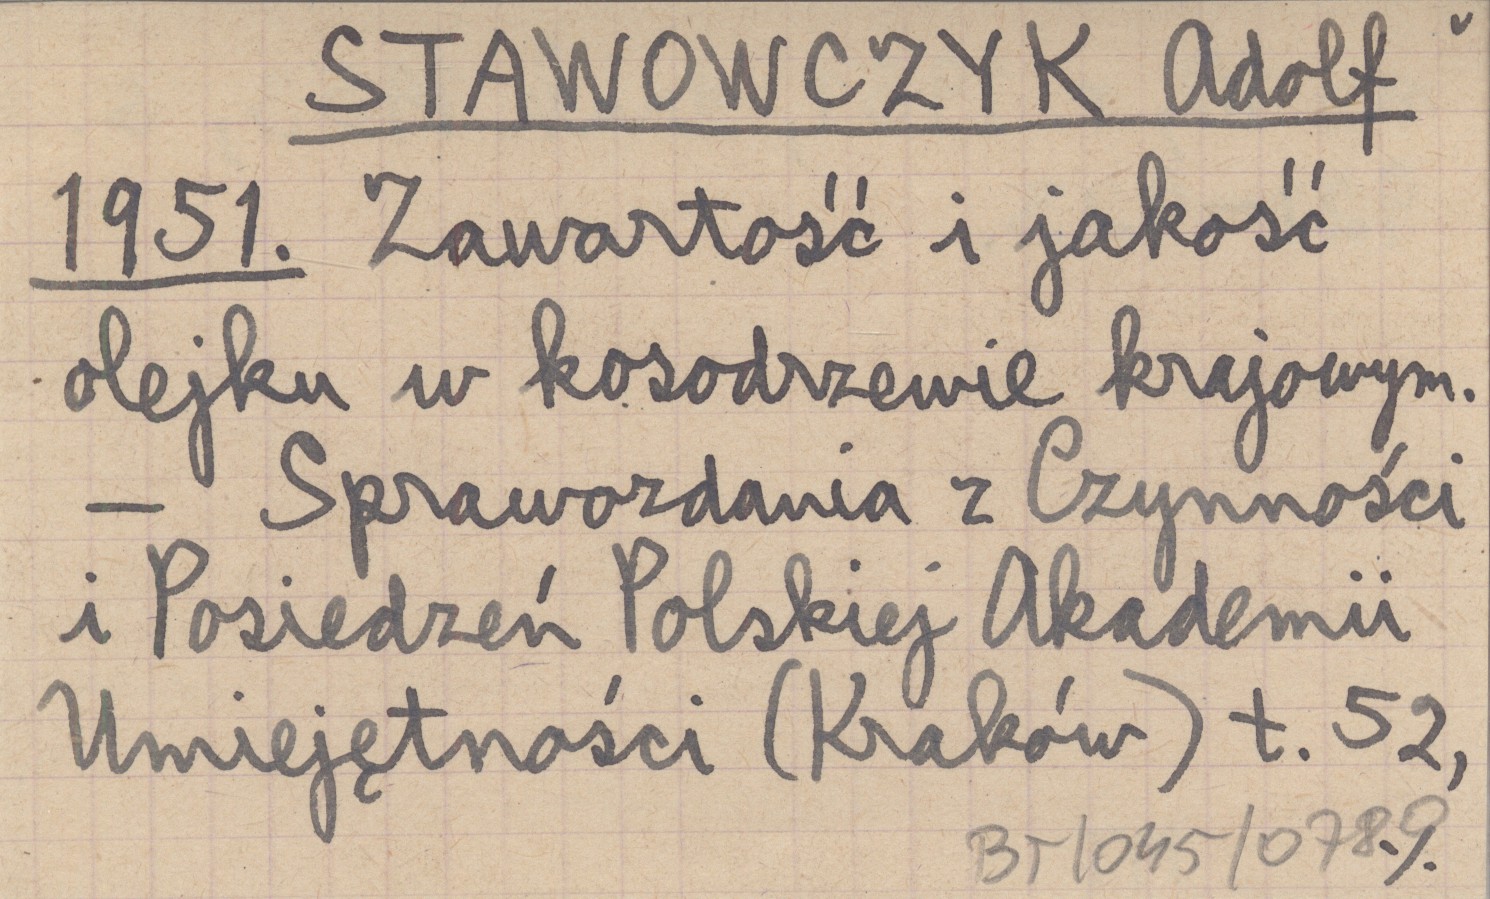 STAWOWCZYK Adolf
1951. Zawartość i jakość
olejku w kosodrzewie krajowym.
— Sprawozdania z Czynności
i Posiedzeń Polskiej Akademii
Umiejętności (Kraków) t. 52,
BT/045/078.9.